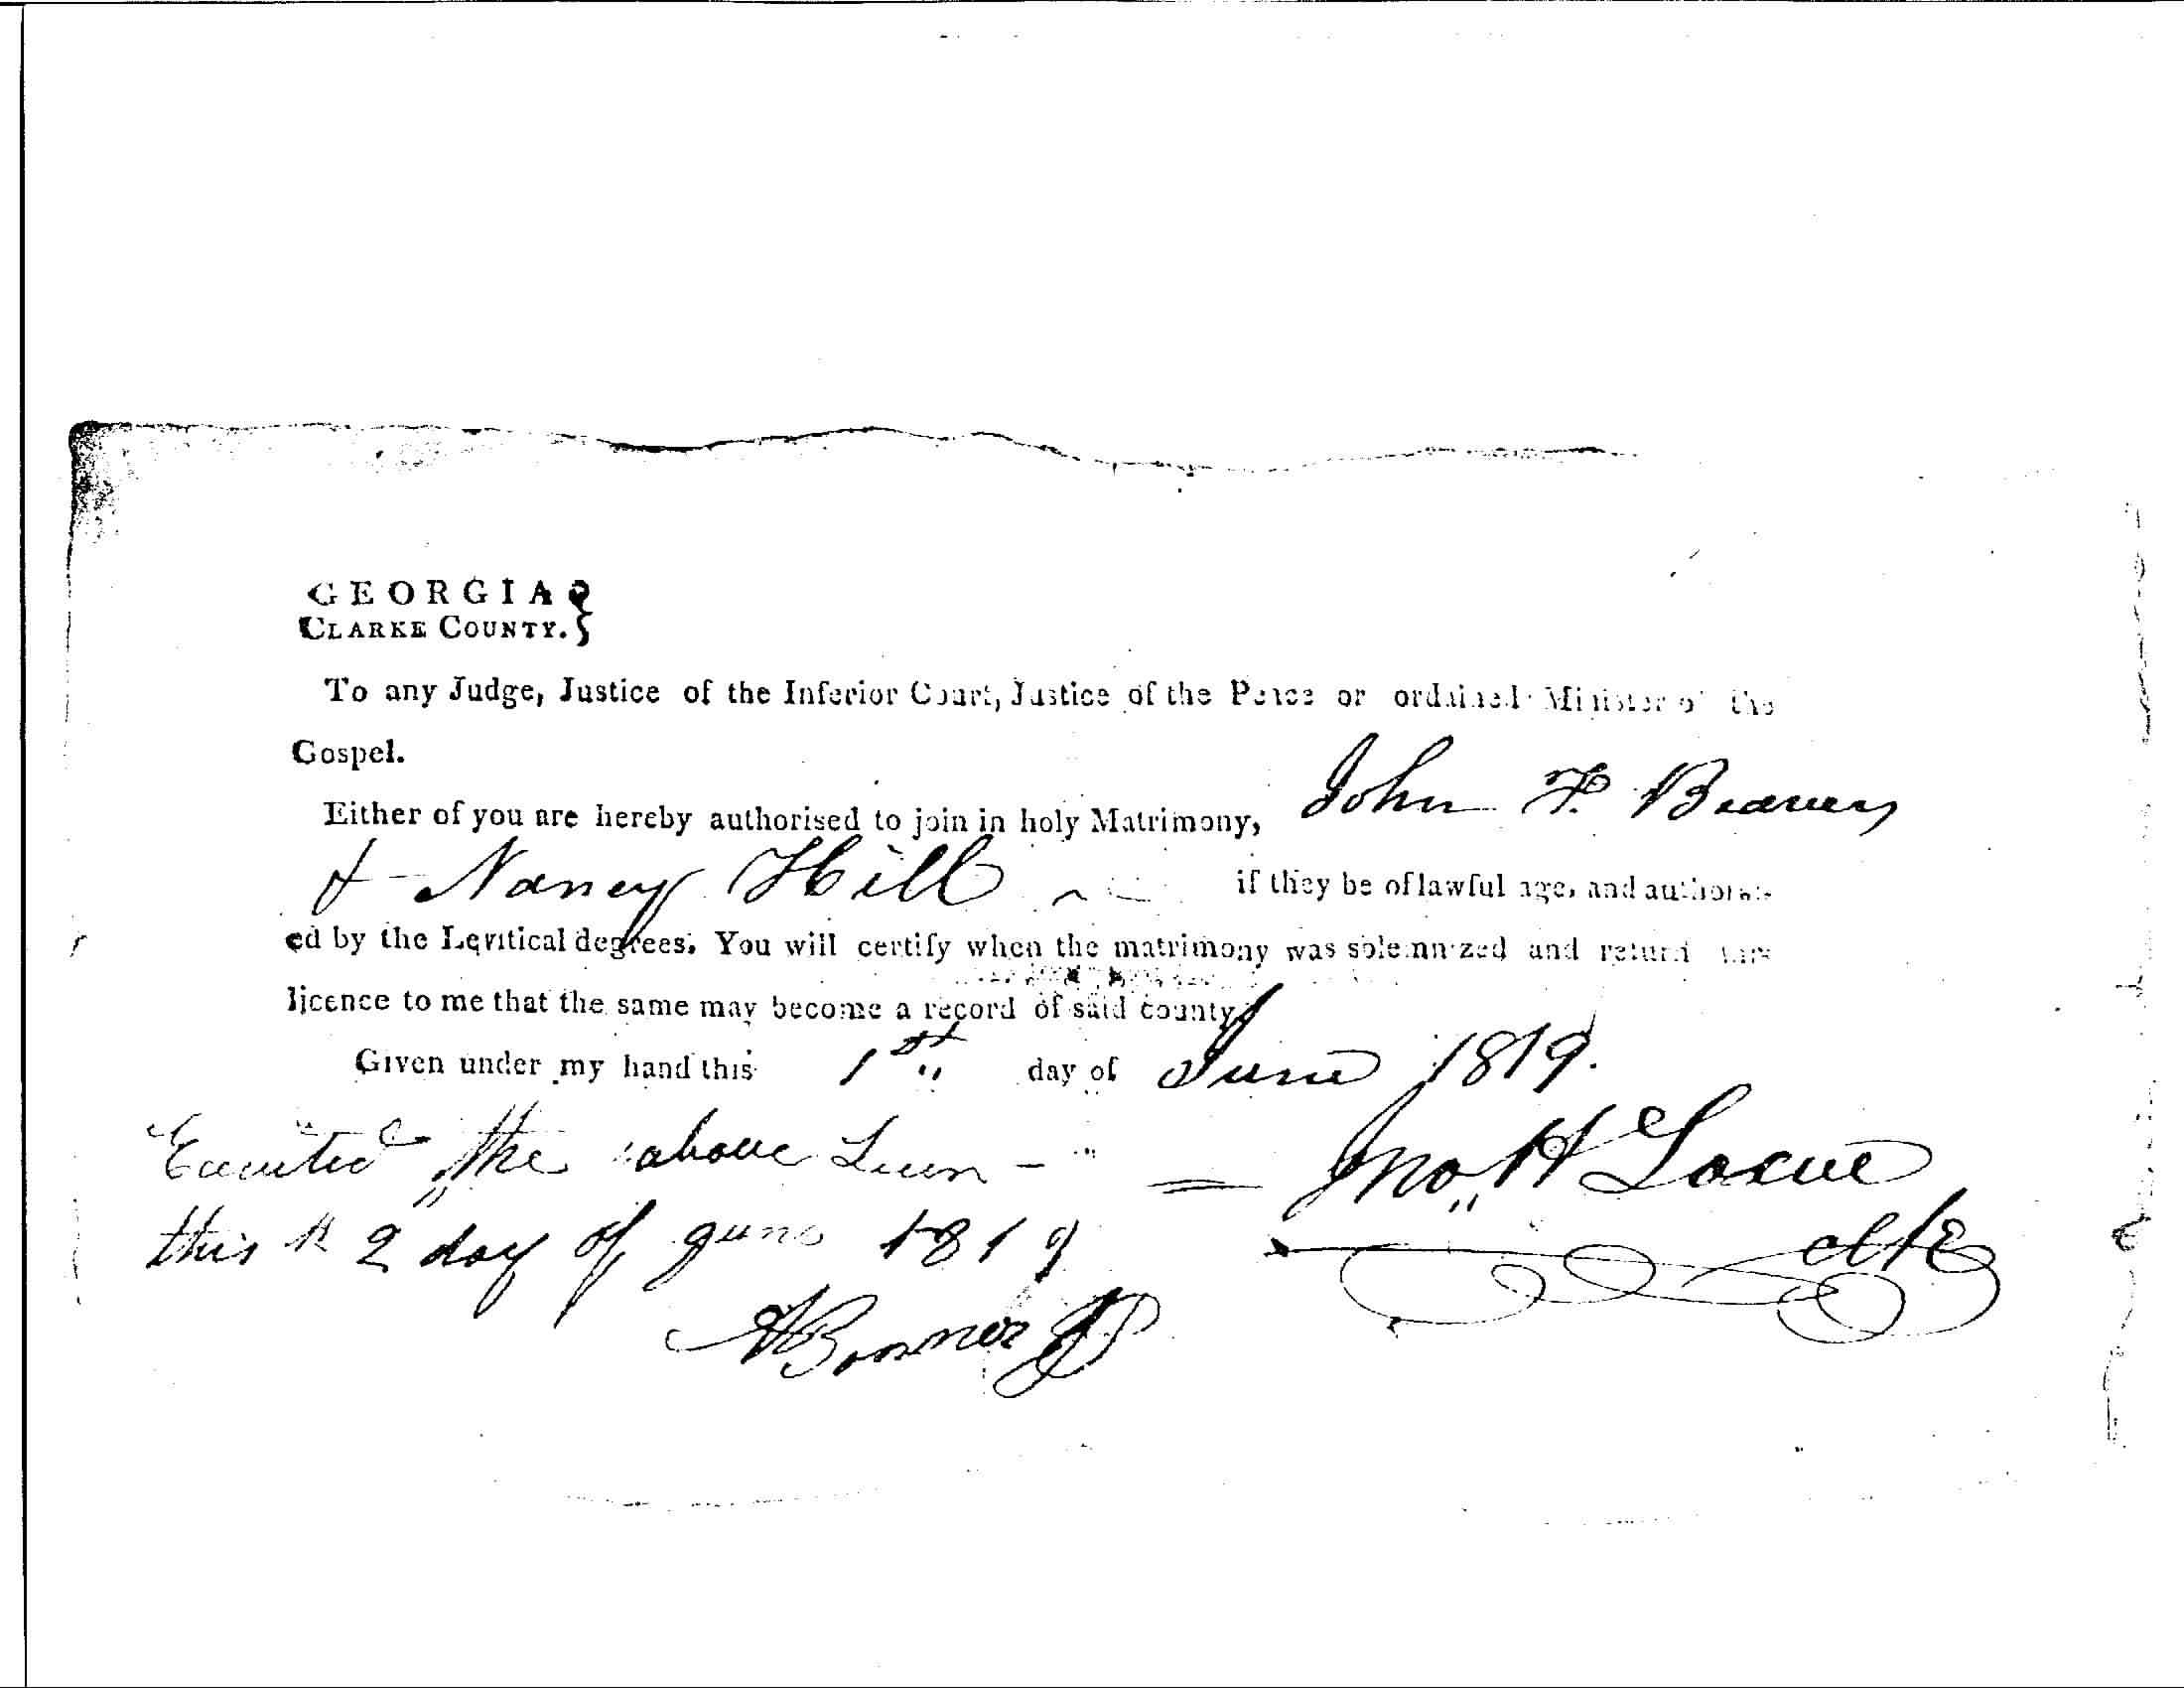 GEORGIA
CLARKE COUNTY.
To any Judge, Justice of the Inferior Court, Justice of the Peace or ordained Minister of the
Gospel.
Either of you are hereby authorised to join in holy Matrimony, John F. Beavers
& Nancy Hill if they be of lawful age, and authoris-
ed by the Levitical degrees. You will certify when the matrimony was solemnized and return this
licence to me that the same may become a record of said county
Given under my hand this 1st day of June 1819.
Executed the above
Jno. H Lowe
this 2 day of June 1819
A Bonner JP